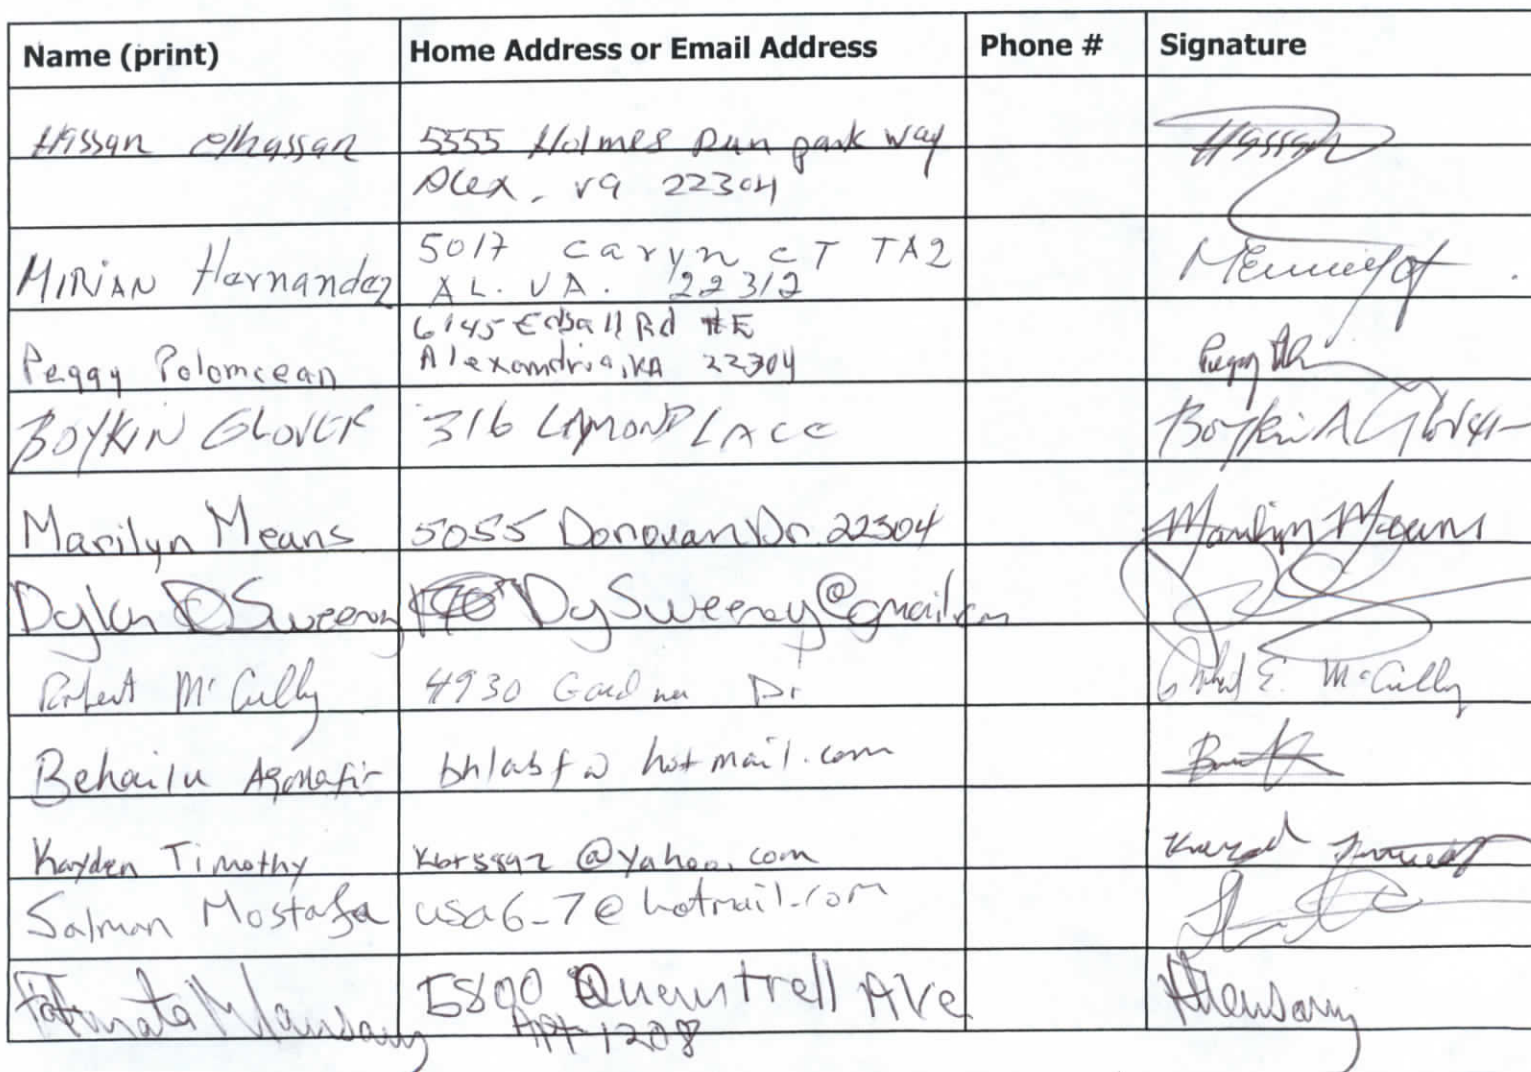 Name (print) Home Address or Email Address Phone # Signature
Hassan elhassan 5555 Holmes Run park way Hassan
Alex, va 22304
MIRIAN Hernandez 5017 caryn CT TA2
AL. VA. 22312
Peggy Polomcean 6145 Edsall Rd #E Peggy
Alexandria, VA 22304
BOYKIN GLOVER 316 LAMOND PLACE Boykin A Glover
Marilyn Means 5055 Donovan Dr. 22304 Marilyn Means
Dylan Sweeney DySweeney@gmail.com
Robert McCully 4930 Gardner Dr Robert E. McCully
Behailu Agonafir hotmail.com
Kayden Timothy @yahoo.com
Salman Mostafa usa6-7@hotmail.com
Fatmata Mansaray 5800 Quantrell Ave
Apt 1208